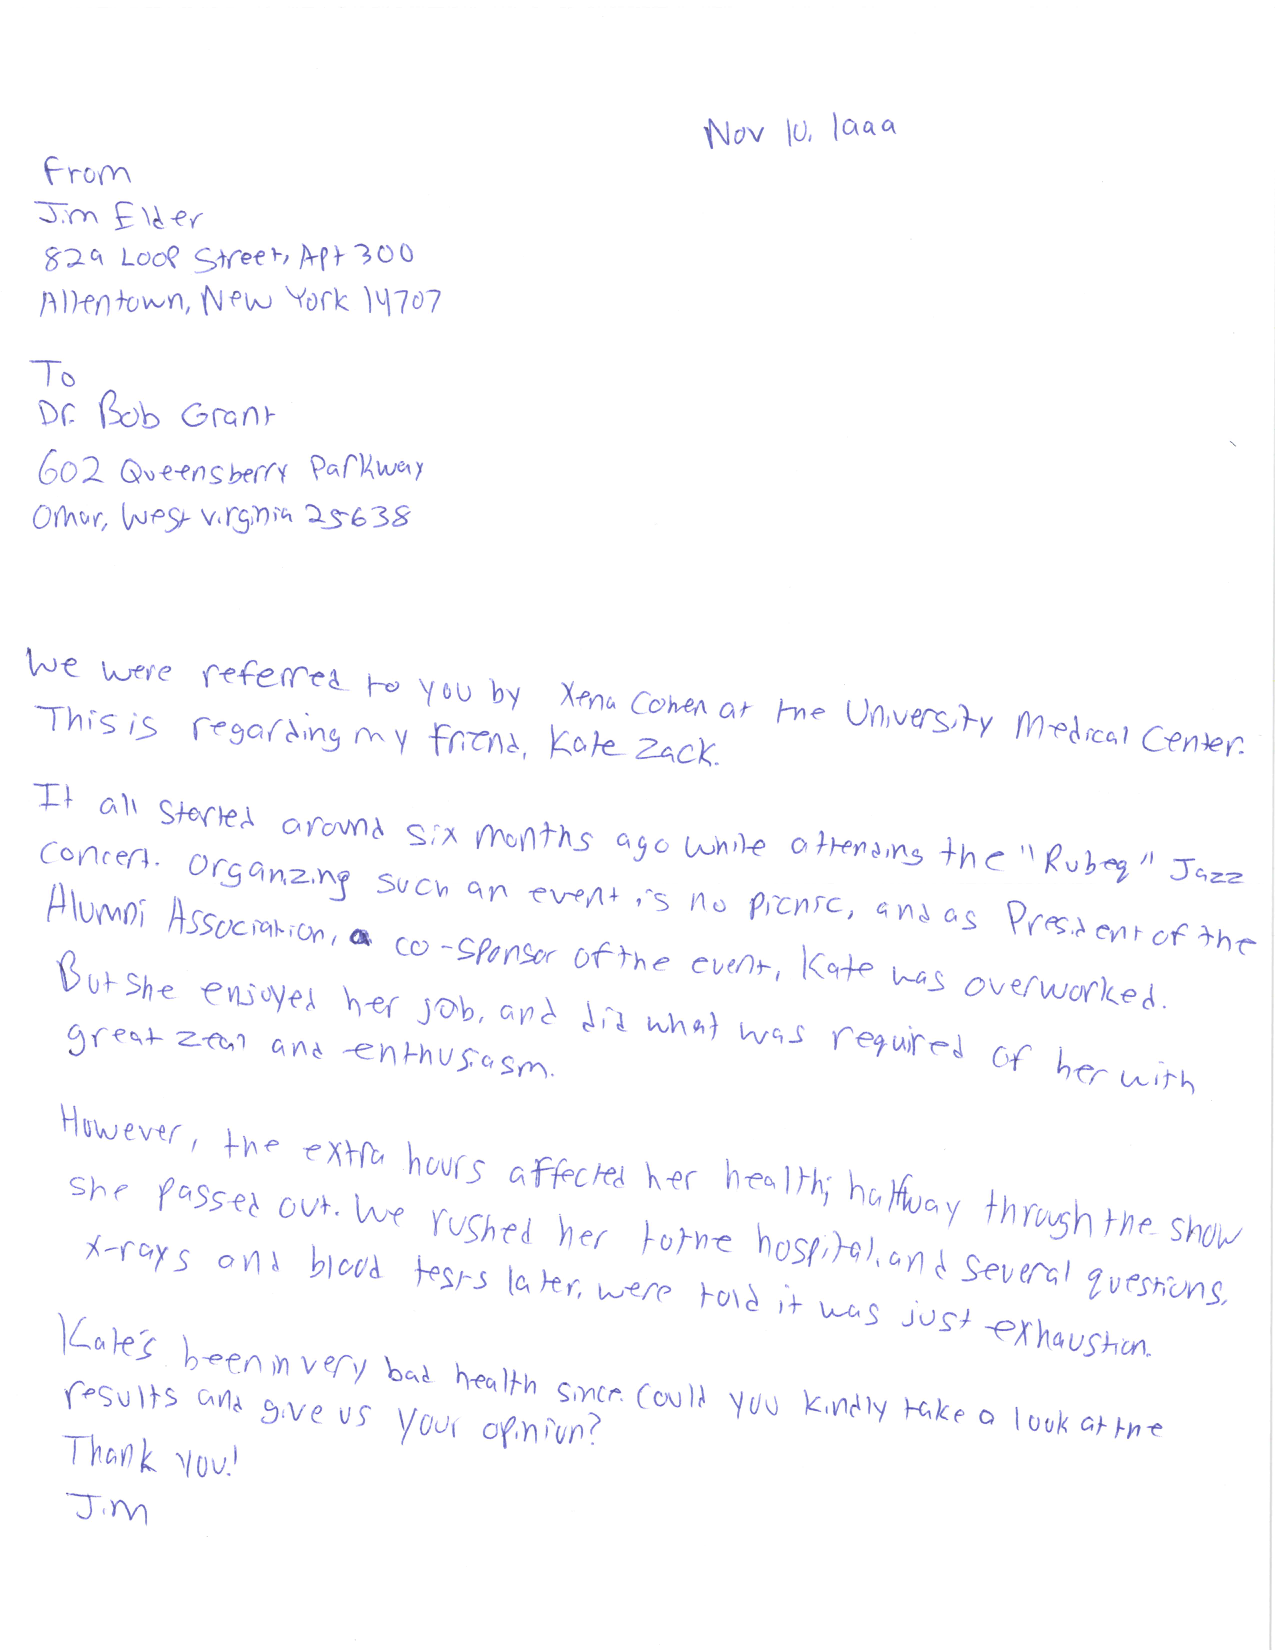 Nov 10, 1999
From
Jim Elder
829 Loop Street, Apt 300
Allentown, New York 14707
To
Dr. Bob Grant
602 Queensberry Parkway
Omar, West Virginia 25638
We were referred to you by Xena Cohen at the University Medical Center.
This is regarding my friend, Kate Zack.
It all started around six months ago while attending the "Rubeq" Jazz
concert. Organizing such an event is no picnic, and as President of the
Alumni Association, a co-sponsor of the event, Kate was overworked.
But she enjoyed her job, and did what was required of her with
great zeal and enthusiasm.
However, the extra hours affected her health; halfway through the show
she passed out. We rushed her to the hospital, and several questions,
x-rays and blood tests later, were told it was just exhaustion.
Kate's been in very bad health since. Could you kindly take a look at the
results and give us your opinion?
Thank you!
Jim